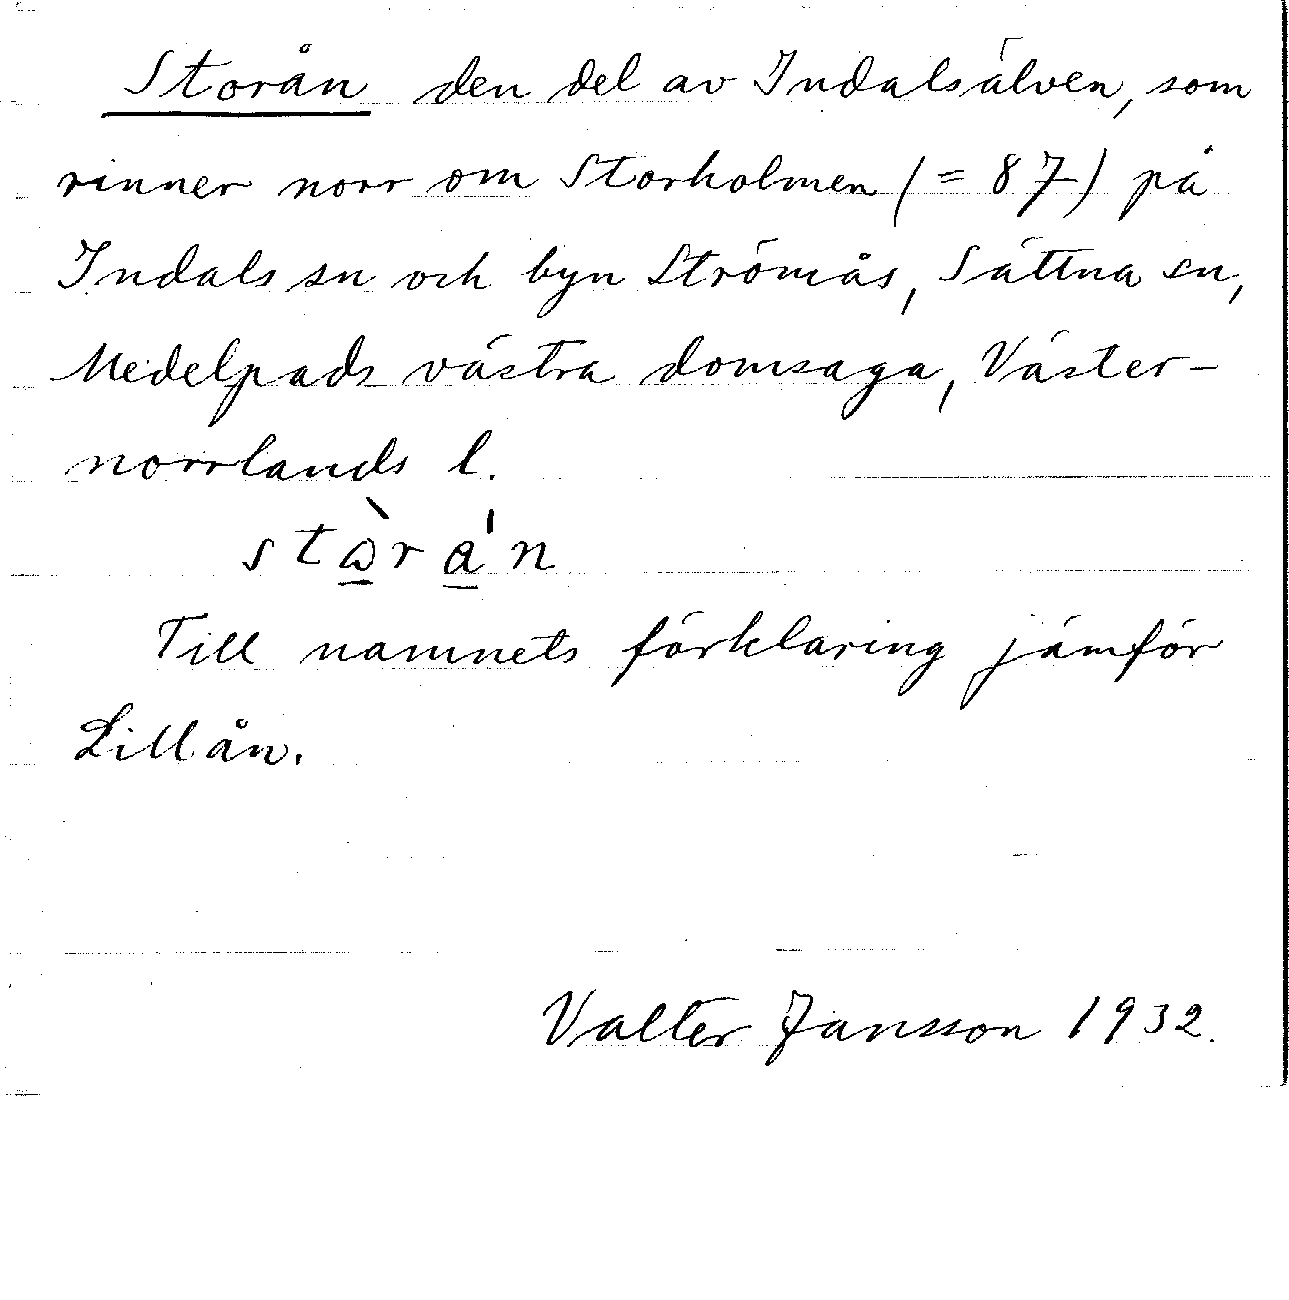 Storån den del av Indalsälven, som
rinner norr om Storholmen (= 87) på
Indals sn och byn Strömås, Sättna sn,
Medelpads västra domsaga, Väster-
norrlands l.
Till namnets förklaring jämför
Lillån.
Valter Jansson 1932.